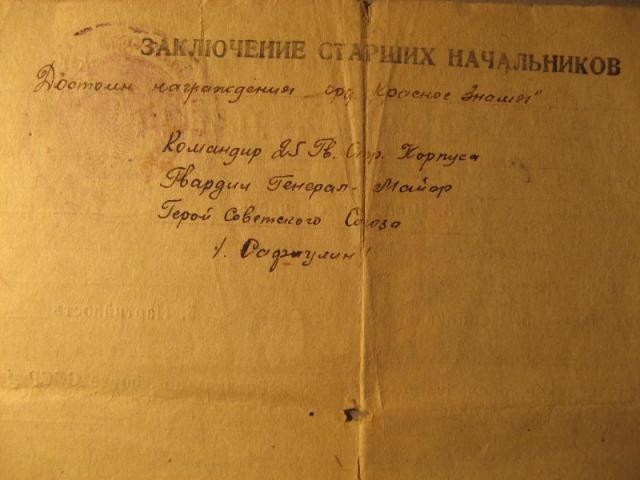 ЗАКЛЮЧЕНИЕ СТАРШИХ НАЧАЛЬНИКОВ
Достоин награждения орд. "Красное Знамя"
Командир 25 Гв. Стр. Корпуса
Гвардии Генерал-Майор
Герой Советского Союза
/. Сафиулин/